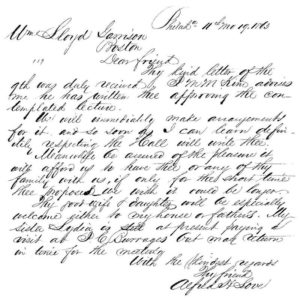 Philada 11th mo 19. 1863
Wm Lloyd Garrison
Boston
Dear friend
Thy kind letter of the
9th was duly received & J M McKim advises
me he has written thee approving the con-
templated lecture.
We will immediately make arrangements
for it, and so soon as I can learn defin-
itely respecting the Hall will write thee.
Meanwhile be assured of the pleasure it
will afford us to have thee or any of thy
family with us, if only for the short time
thee proposes. We wish it would be longer.
Thy good wife & daughter will be especially
welcome either to my house or fathers. My
sister Lydia is still at present paying a
visit at Burrages but may return
in time for the meeting
With the kindest regards
Thy friend
Alfred H Love